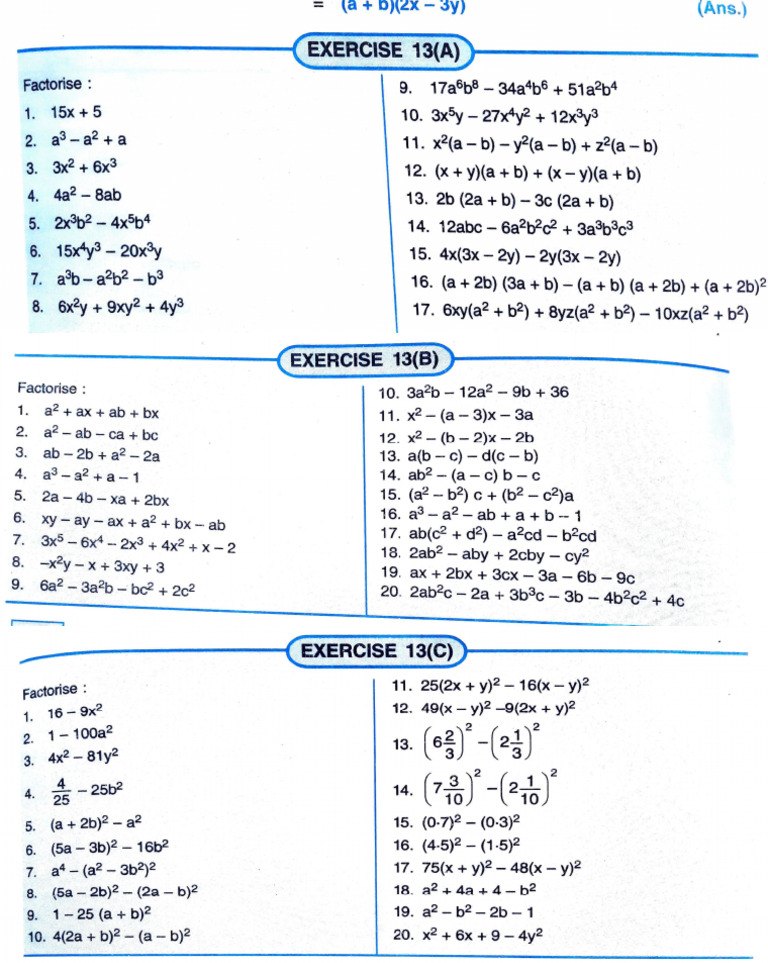 = (a + b)(2x – 3y) (Ans.)
EXERCISE 13(A)
Factorise :
1. 15x + 5
2. a³ – a² + a
3. 3x² + 6x³
4. 4a² – 8ab
5. 2x³b² – 4x⁵b⁴
6. 15x⁴y³ – 20x³y
7. a³b – a²b² – b³
8. 6x²y + 9xy² + 4y³
9. 17a⁶b⁸ – 34a⁴b⁶ + 51a²b⁴
10. 3x⁵y – 27x⁴y² + 12x³y³
11. x²(a – b) – y²(a – b) + z²(a – b)
12. (x + y)(a + b) + (x – y)(a + b)
13. 2b (2a + b) – 3c (2a + b)
14. 12abc – 6a²b²c² + 3a³b³c³
15. 4x(3x – 2y) – 2y(3x – 2y)
16. (a + 2b) (3a + b) – (a + b) (a + 2b) + (a + 2b)²
17. 6xy(a² + b²) + 8yz(a² + b²) – 10xz(a² + b²)
EXERCISE 13(B)
Factorise :
1. a² + ax + ab + bx
2. a² – ab – ca + bc
3. ab – 2b + a² – 2a
4. a³ – a² + a – 1
5. 2a – 4b – xa + 2bx
6. xy – ay – ax + a² + bx – ab
7. 3x⁵ – 6x⁴ – 2x³ + 4x² + x – 2
8. –x²y – x + 3xy + 3
9. 6a² – 3a²b – bc² + 2c²
10. 3a²b – 12a² – 9b + 36
11. x² – (a – 3)x – 3a
12. x² – (b – 2)x – 2b
13. a(b – c) – d(c – b)
14. ab² – (a – c) b – c
15. (a² – b²) c + (b² – c²)a
16. a³ – a² – ab + a + b – 1
17. ab(c² + d²) – a²cd – b²cd
18. 2ab² – aby + 2cby – cy²
19. ax + 2bx + 3cx – 3a – 6b – 9c
20. 2ab²c – 2a + 3b³c – 3b – 4b²c² + 4c
EXERCISE 13(C)
Factorise :
1. 16 – 9x²
2. 1 – 100a²
3. 4x² – 81y²
4. 4/25 – 25b²
5. (a + 2b)² – a²
6. (5a – 3b)² – 16b²
7. a⁴ – (a² – 3b²)²
8. (5a – 2b)² – (2a – b)²
9. 1 – 25 (a + b)²
10. 4(2a + b)² – (a – b)²
11. 25(2x + y)² – 16(x – y)²
12. 49(x – y)² –9(2x + y)²
13. (6 2/3)² – (2 1/3)²
14. (7 3/10)² – (2 1/10)²
15. (0·7)² – (0·3)²
16. (4·5)² – (1·5)²
17. 75(x + y)² – 48(x – y)²
18. a² + 4a + 4 – b²
19. a² – b² – 2b – 1
20. x² + 6x + 9 – 4y²